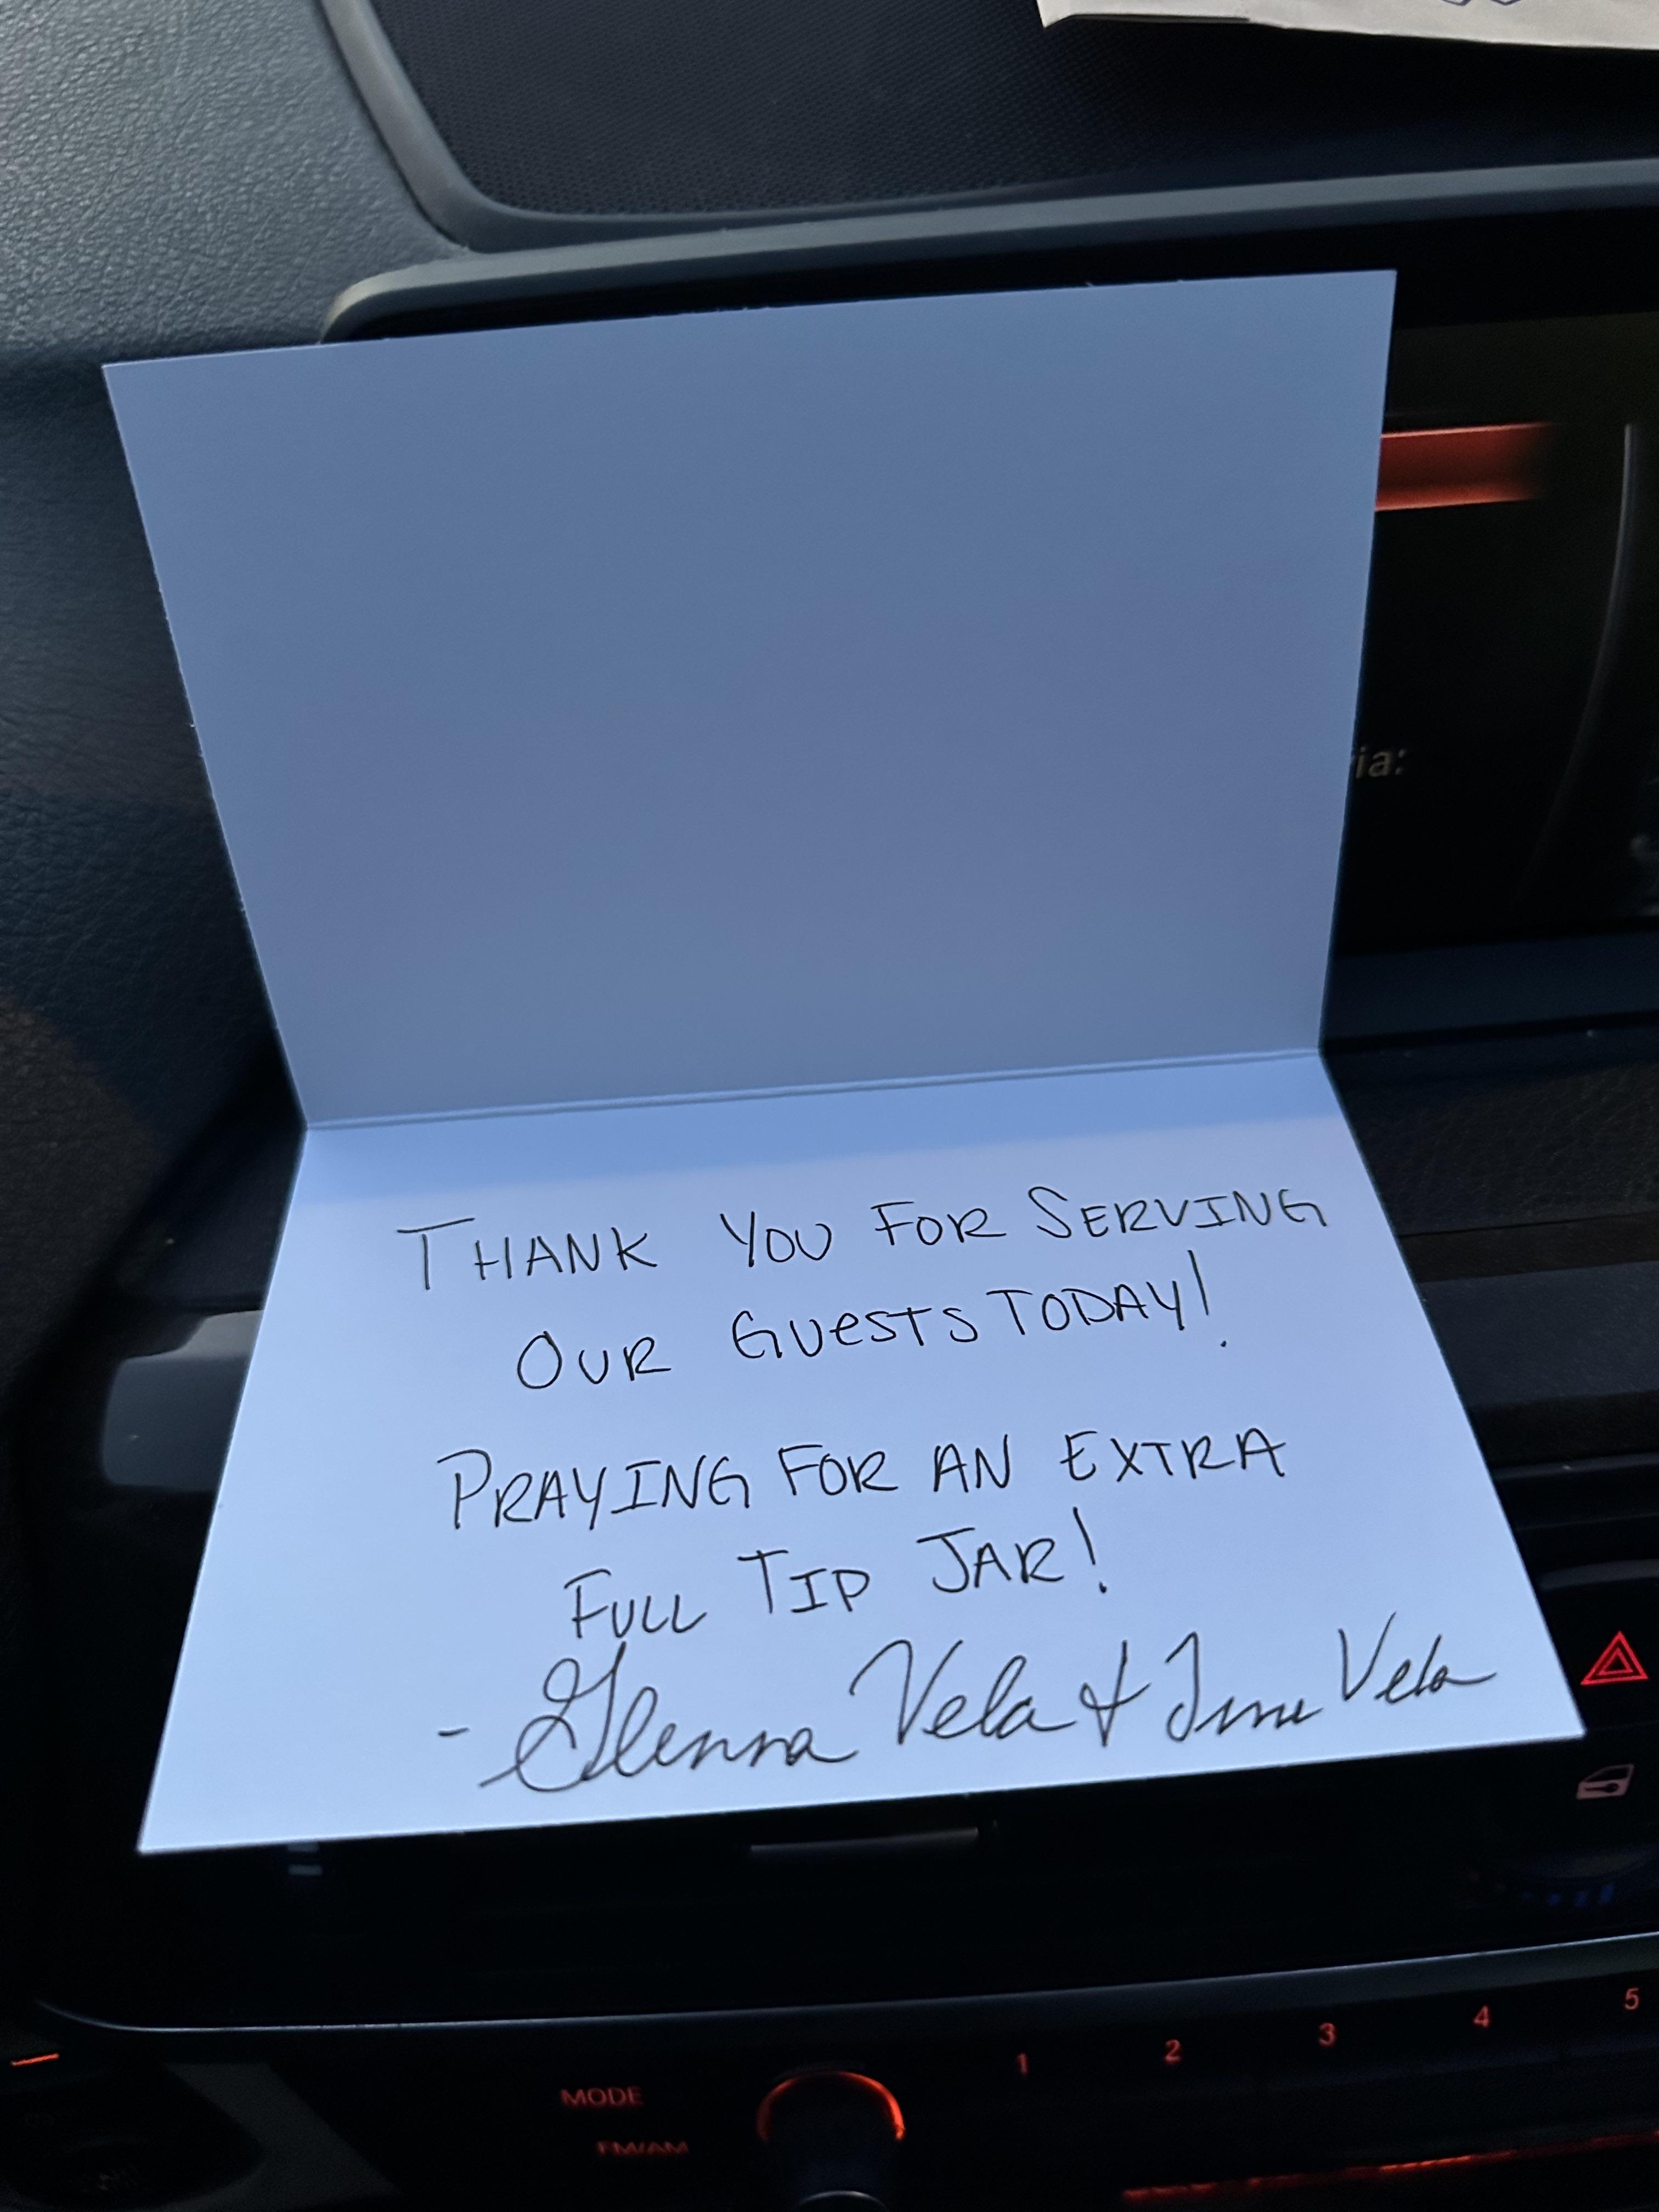 via:
THANK YOU FOR SERVING
OUR GUESTS TODAY!
PRAYING FOR AN EXTRA
FULL TIP JAR!
- Glenna Vela & Vela
1 2 3 4 5
MODE
FM/AM